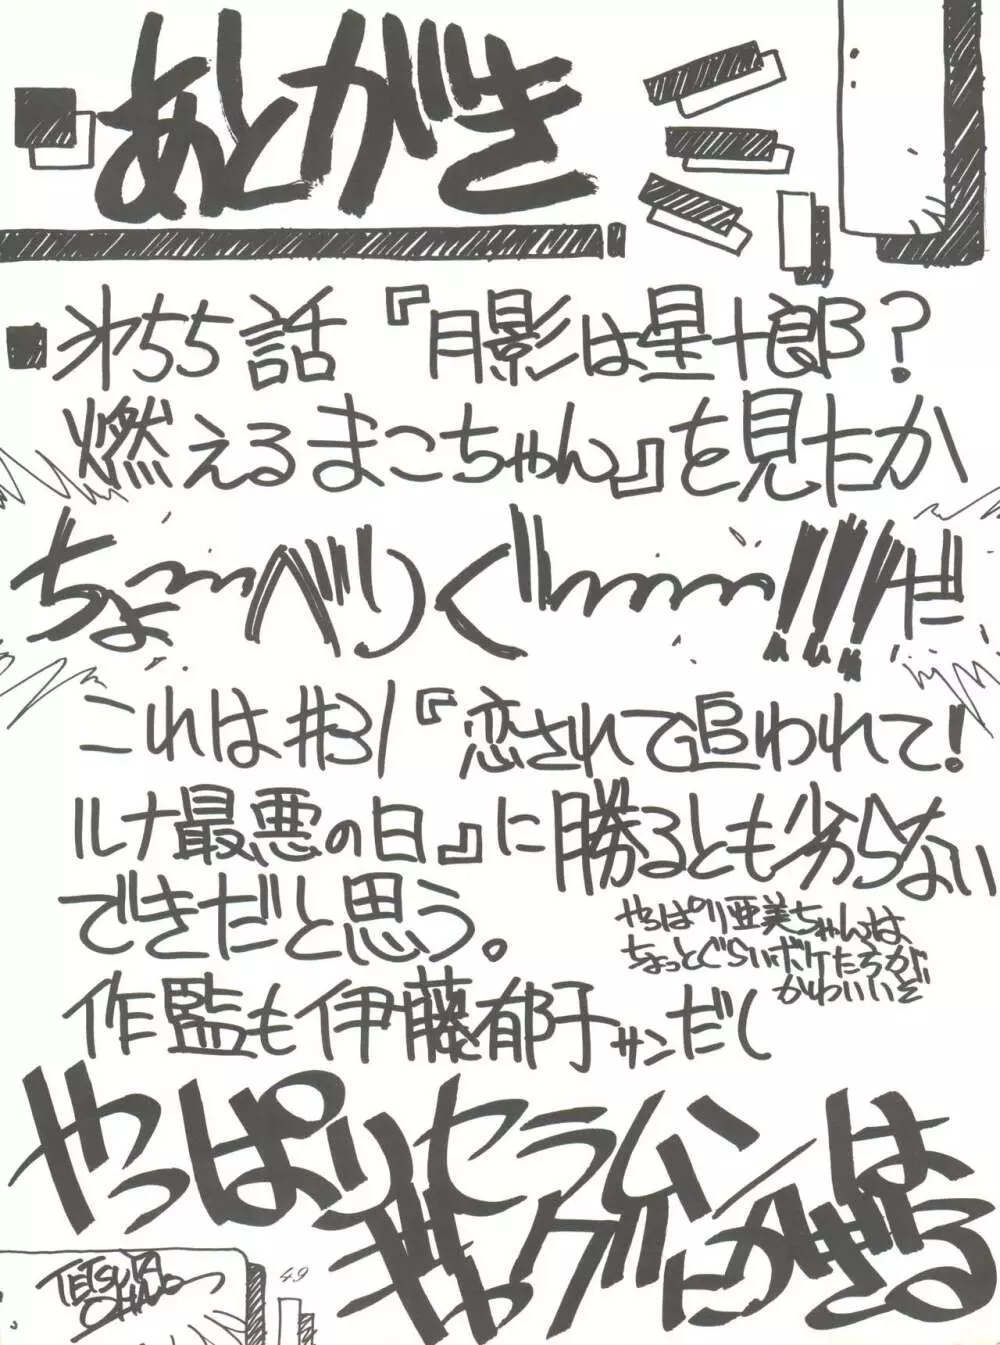 あとがき
■オ55話『月影は星十郎?
燃えるまこちゃん』を見たか
ちょ〜〜べりぐ〜〜〜!!!だ
これは#31『恋されて追われて!
ルナ最悪の日』に勝るとも劣らない
できだと思う。
作監も伊藤郁子サンだし
やっぱり亜美ちゃんは、
ちょっとぐらいボケたろうが
かわいいぞ
やっぱりセラムンは
ギャグにかぎる
TETSUYA
49